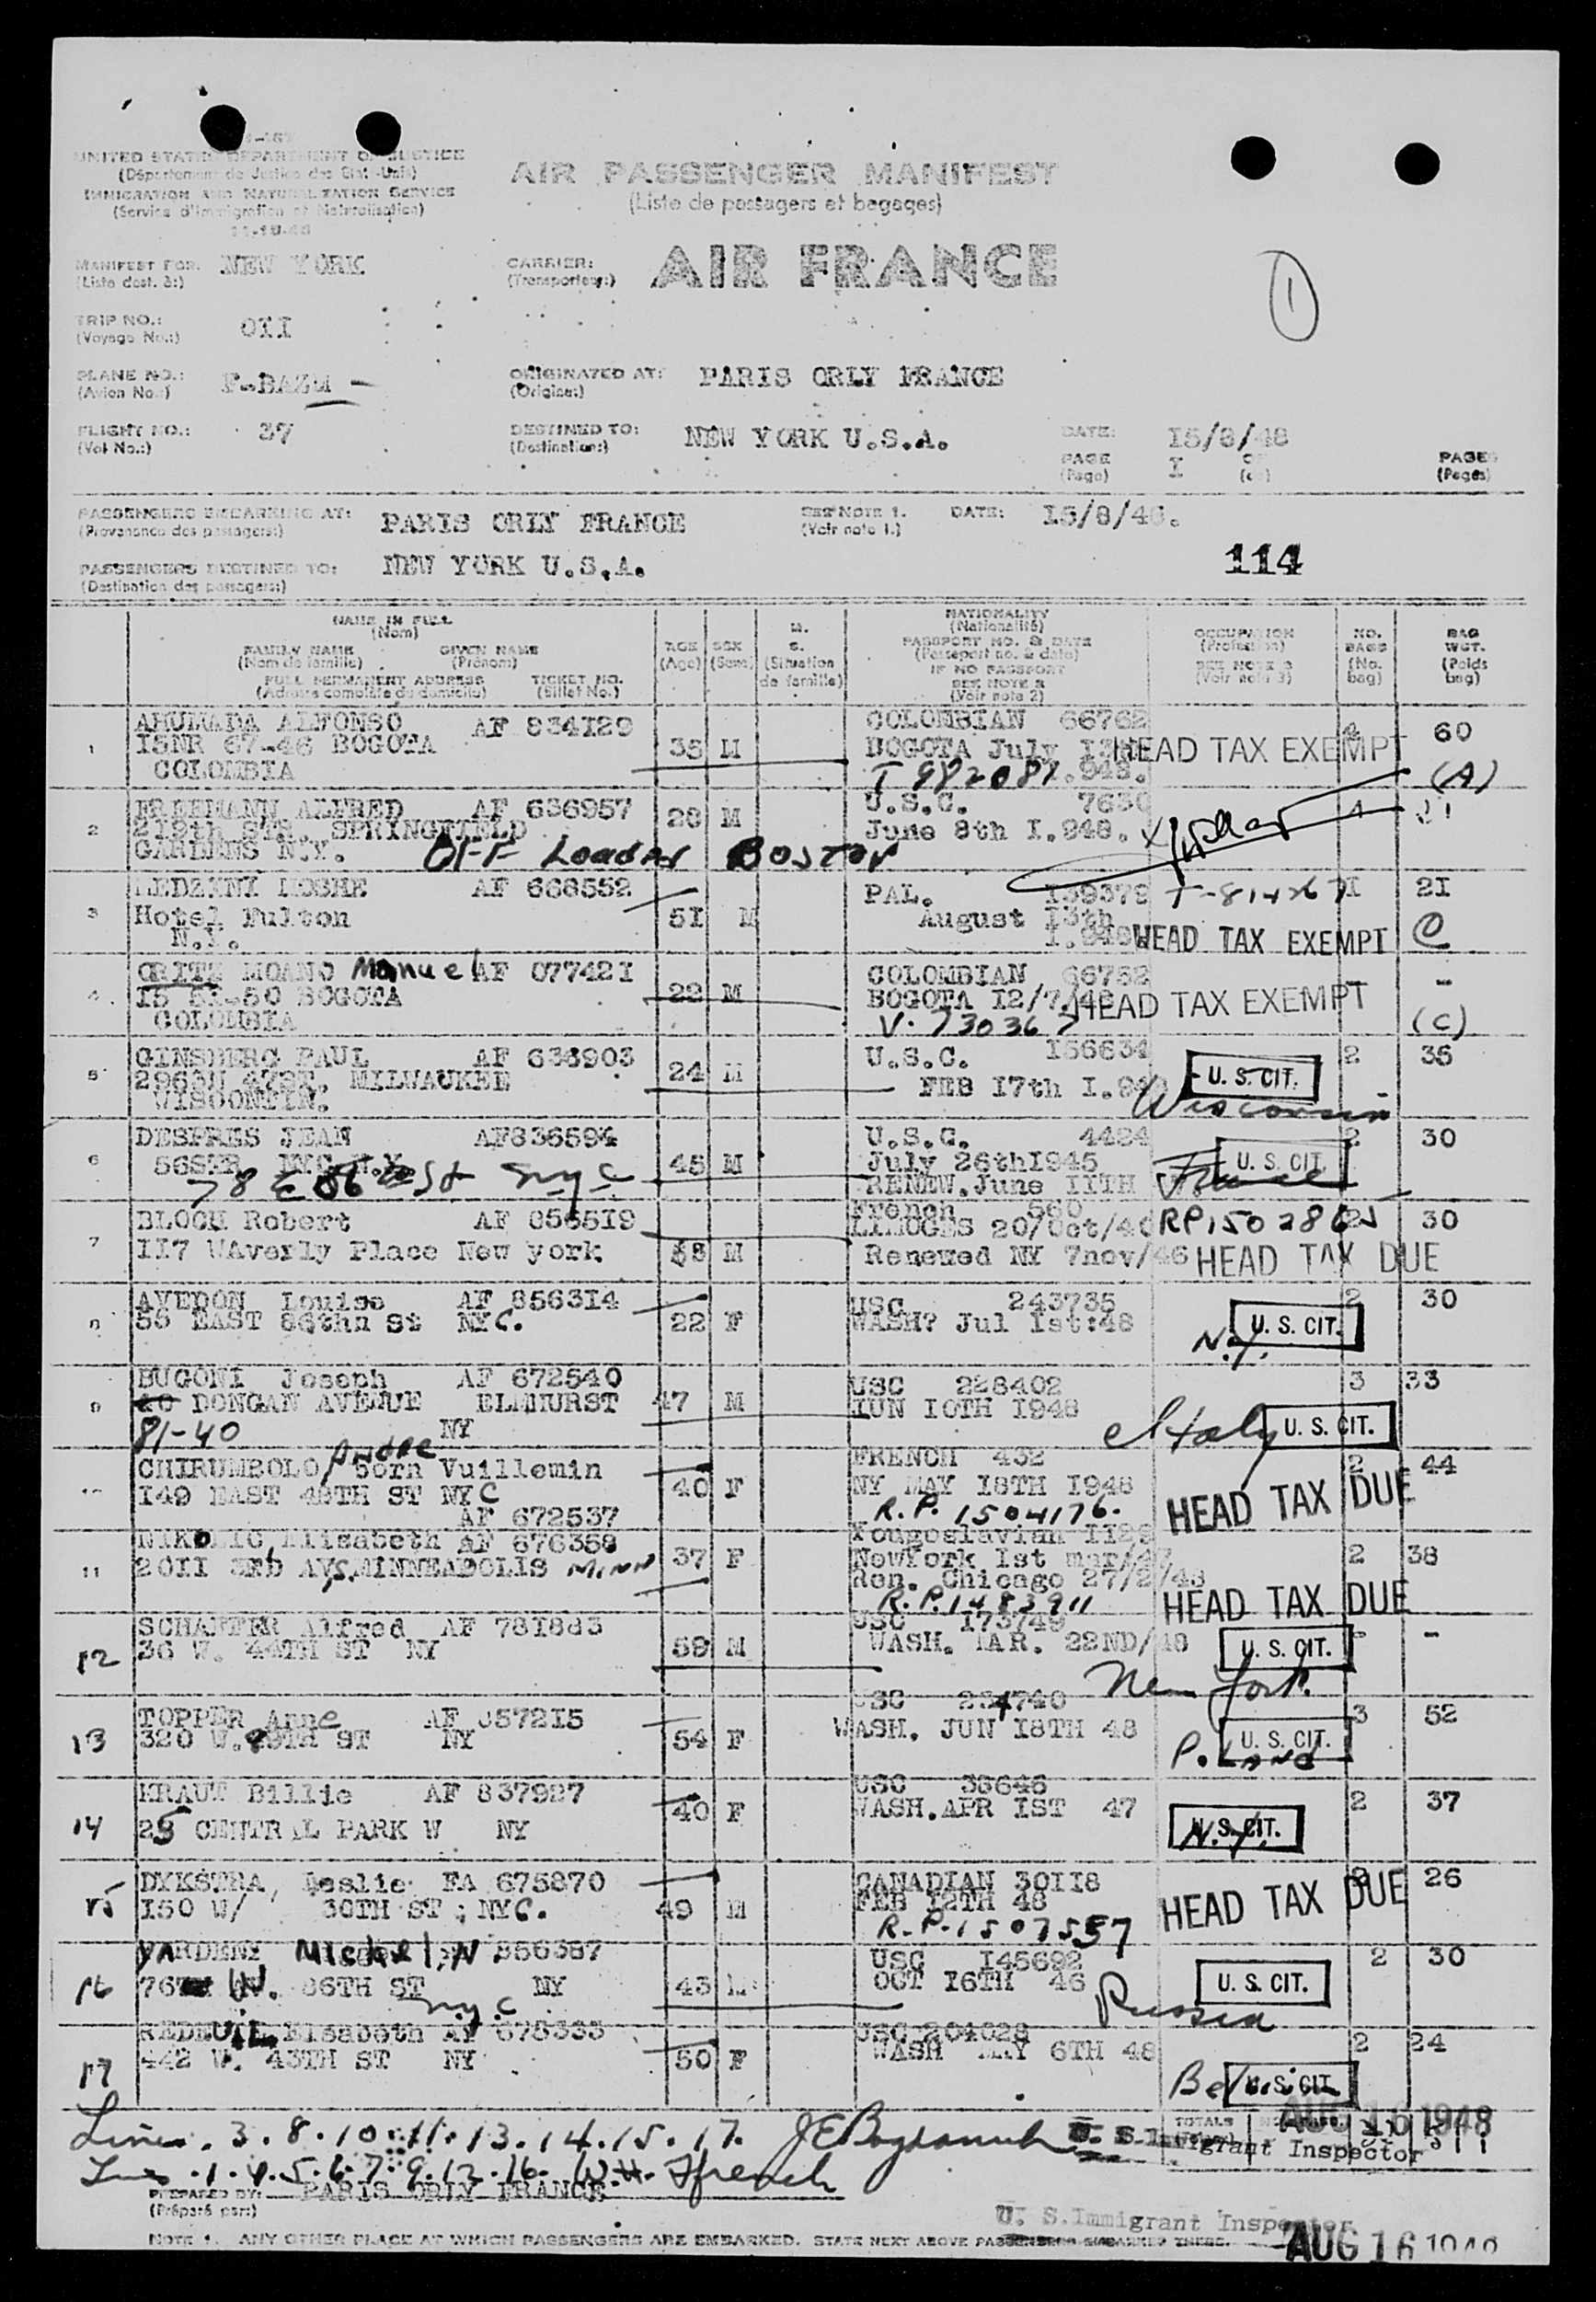 UNITED STATES DEPARTMENT OF JUSTICE
(Département de Justice des Etat-Unis)
IMMIGRATION AND NATURALIZATION SERVICE
(Service d'immigration et Naturalisation)
AIR PASSENGER MANIFEST
(Liste de passagers et bagages)
MANIFEST FOR: NEW YORK
(Liste dest. à:)
CARRIER: AIR FRANCE
(Transporteur:)
1
TRIP NO.: OII
(Voyage No.:)
PLANE NO.: F-BAZM
(Avion No.:)
ORIGINATED AT: PARIS ORLY FRANCE
(Origine:)
FLIGHT NO.: 37
(Vol No.:)
DESTINED TO: NEW YORK U.S.A.
(Destination:)
DATE: I5/8/48
PAGE I OF PAGES
(Page) (de) (Pages)
PASSENGERS EMBARKING AT: PARIS ORLY FRANCE
(Provenance des passagers:)
SEE NOTE 1. DATE: I5/8/48.
(Voir note 1.)
114
PASSENGERS DESTINED TO: NEW YORK U.S.A.
(Destination des passagers:)
NAME IN FULL
(Nom)
FAMILY NAME GIVEN NAME
(Nom de famille) (Prénom)
FULL PERMANENT ADDRESS TICKET NO.
(Adresse complète du domicile) (Billet No.)
AGE
(Age)
SEX
(Sexe)
M.
S.
(Situation
de famille)
NATIONALITY
(Nationalité)
PASSPORT NO. & DATE
(Passeport no. & date)
IF NO PASSPORT
SEE NOTE 2
(Voir note 2)
OCCUPATION
(Profession)
SEE NOTE 3
(Voir note 3)
NO.
BAGS
(No.
bag)
BAG
WGT.
(Poids
bag)
1 AHUMADA ALFONSO AF 834I29 COLOMBIAN 66762 4 60
I5NR 67-46 BOGOTA 35 M BOGOTA July HEAD TAX EXEMPT
COLOMBIA T 982081 .948. (A)
2 FREEMANN ALFRED AF 636957 28 M U.S.C. 7630 4
219th STR. SPRINGFIELD June 8th I.948.
GARDENS N.Y. OFF Loaded Boston
3 MOSHE AF 668552 PAL. I39379 I 2I
Hotel Fulton 5I M August I3th
N.Y. I.948 HEAD TAX EXEMPT
4 MOANO Manuel AF 077421 COLOMBIAN 66752 -
BOGOTA 22 M BOGOTA I2/7/48 HEAD TAX EXEMPT
COLOMBIA V. 730367 (C)
5 GINSBERG PAUL AF 636903 U.S.C. I56634 2 35
MILWAUKEE 24 M FEB I7th I.94 U. S. CIT.
WISCONTIN. Wisconsin
6 DESPRES JEAN AF836594 U.S.C. 4424 2 30
56STR NYC N.Y. 45 M July 26thI945 U. S. CIT
78 E 56 St nyc RENEW.June IITH France
7 BLOCH Robert AF 856519 French 560 30
II7 WAverly Place New york M LIMOGES 20/Oct/46
Renewed NY 7nov/46 HEAD TAX DUE
8 AVEDON Louise AF 8563I4 USC 243735 2 30
55 EAST 86thn St NYC. 22 F WASH? Jul Ist:48 U. S. CIT.
N.Y.
9 BUGONI Joseph AF 672540 USC 228402 3 33
40 DONGAN AVENUE ELMHURST 47 M IUN IOTH I948
81-40 NY Italy U. S. CIT.
CHIRUMBOLO Andre born Vuillemin FRENCH 432 2 44
I49 EAST 48TH ST NYC 40 F NY MAY I8TH I948
AF 672537 R.P. 1504176. HEAD TAX DUE
11 NIKOLIC, Elisabeth AF 676358 Yougoslavian II29
20II 3RD AV S. MINNEAPOLIS MINN 37 F NewYork Ist mar/47 2 38
Ren. Chicago 27/2/48
R.P.1483911 HEAD TAX DUE
12 SCHAFFER Alfred AF 78I883 USC I73749
36 W. 44TH ST NY 59 M WASH. MAR. 22ND/48 U. S. CIT. -
New York.
13 TOPPER Anne AF 8572I5 USC 234740 3 52
320 W.89TH ST NY 54 F WASH. JUN I8TH 48 U. S. CIT.
P.LAND
14 KRAUT Billie AF 837927 USC 36646 2 37
25 CENTRAL PARK W NY 40 F WASH.APR IST 47 U. S. CIT.
N.Y.
15 DYKSTRA, Leslie FA 675870 CANADIAN 30II8 26
I50 W/ 30TH ST ; NYC. 49 M FEB I2TH 48
R.P.1507557 HEAD TAX DUE
16 YARDENY Michel.N. 856387 USC I45692 2 30
76 W. 86TH ST NY 43 M OCT I6TH 46 U. S. CIT.
nyc Russia
17 Elsabeth AF 675333 USC 204028 2 24
442 W. 43TH ST NY 50 F WASH MAY 6TH 48
U. S. CIT.
Lines. 3. 8. 10. 11. 13. 14. 15. 17. U. S. Immigrant Inspector
TOTALS
AUG 16 1948
Lines .1.4.5.6.7.9.12.16. W.H. Ffrench
PREPARED BY: PARIS ORLY FRANCE
(Préparé par:)
U. S.Immigrant Inspector
NOTE 1. ANY OTHER PLACE AT WHICH PASSENGERS ARE EMBARKED. STATE NEXT ABOVE PASSENGERS EMBARKED THERE.
AUG 16 1948